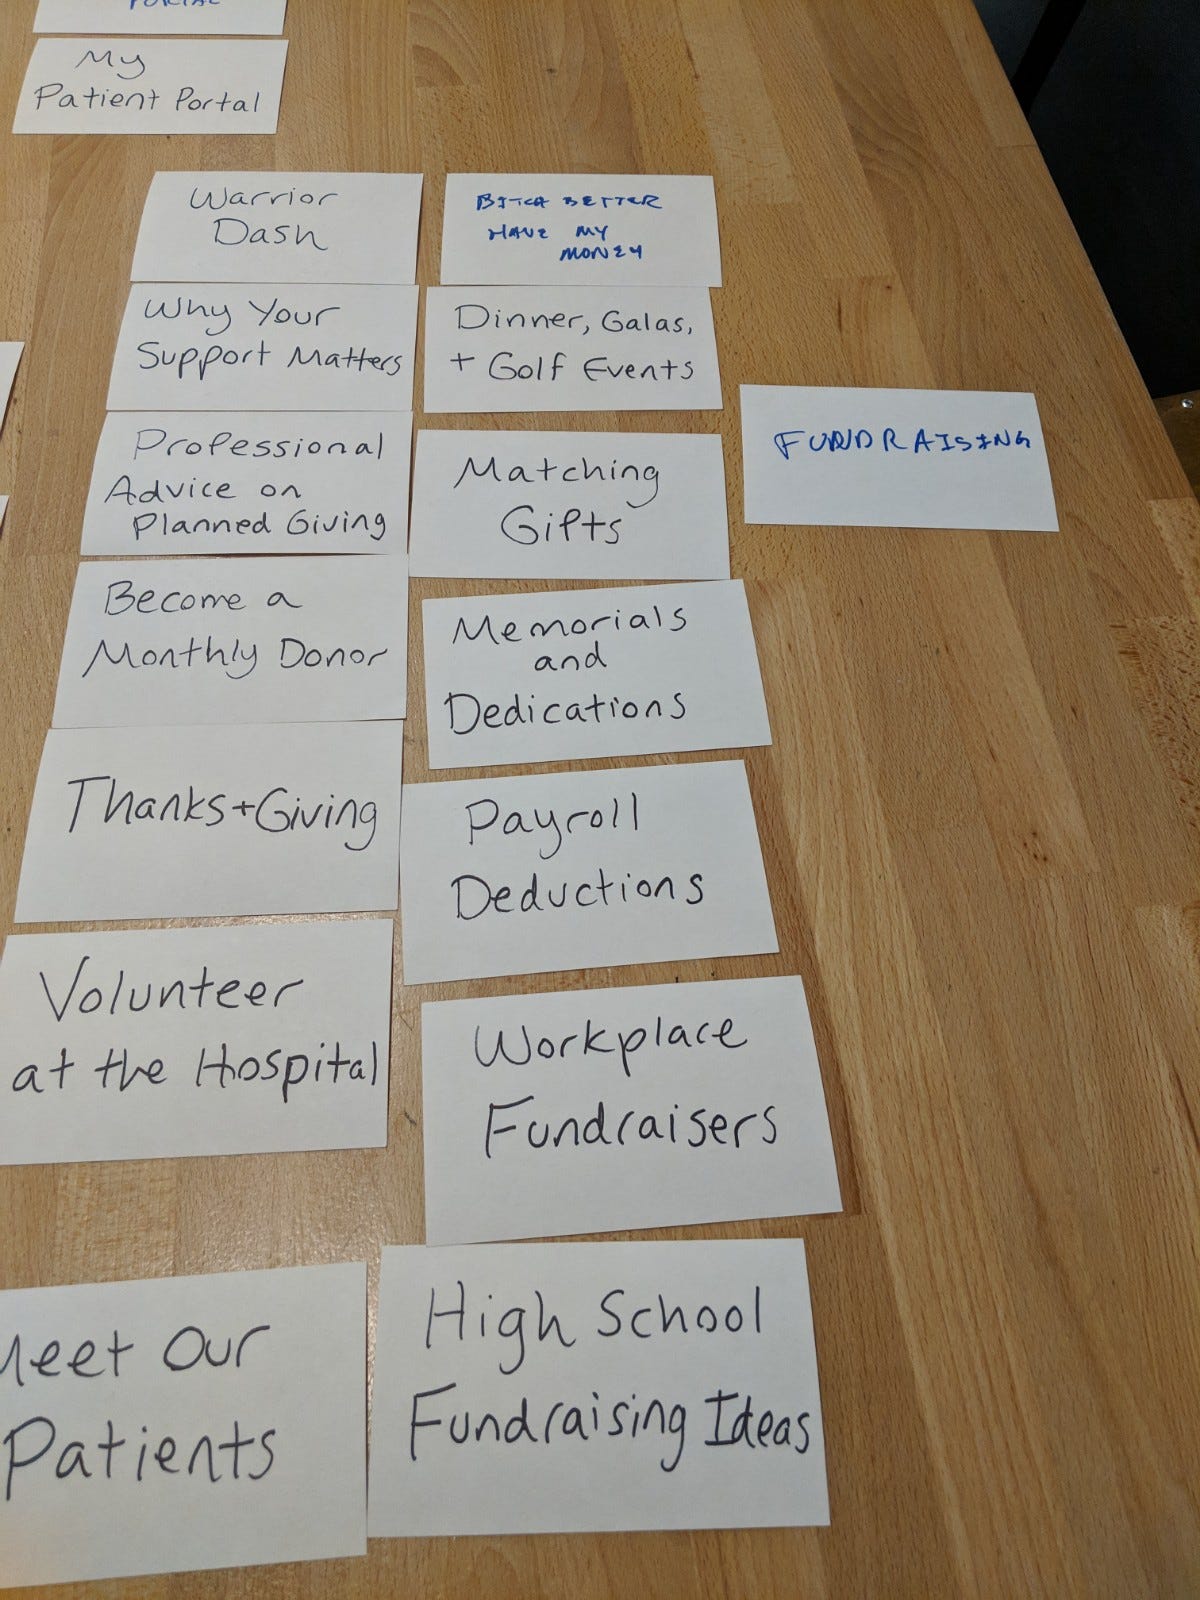 PORTAL
My
Patient Portal
Warrior
Dash
Why Your
Support Matters
Professional
Advice on
Planned Giving
Become a
Monthly Donor
Thanks+Giving
Volunteer
at the Hospital
Meet Our
Patients
BITCH BETTER
HAVE MY
MONEY
Dinner, Galas,
+ Golf Events
Matching
Gifts
Memorials
and
Dedications
Payroll
Deductions
Workplace
Fundraisers
High School
Fundraising Ideas
FUNDRAISING